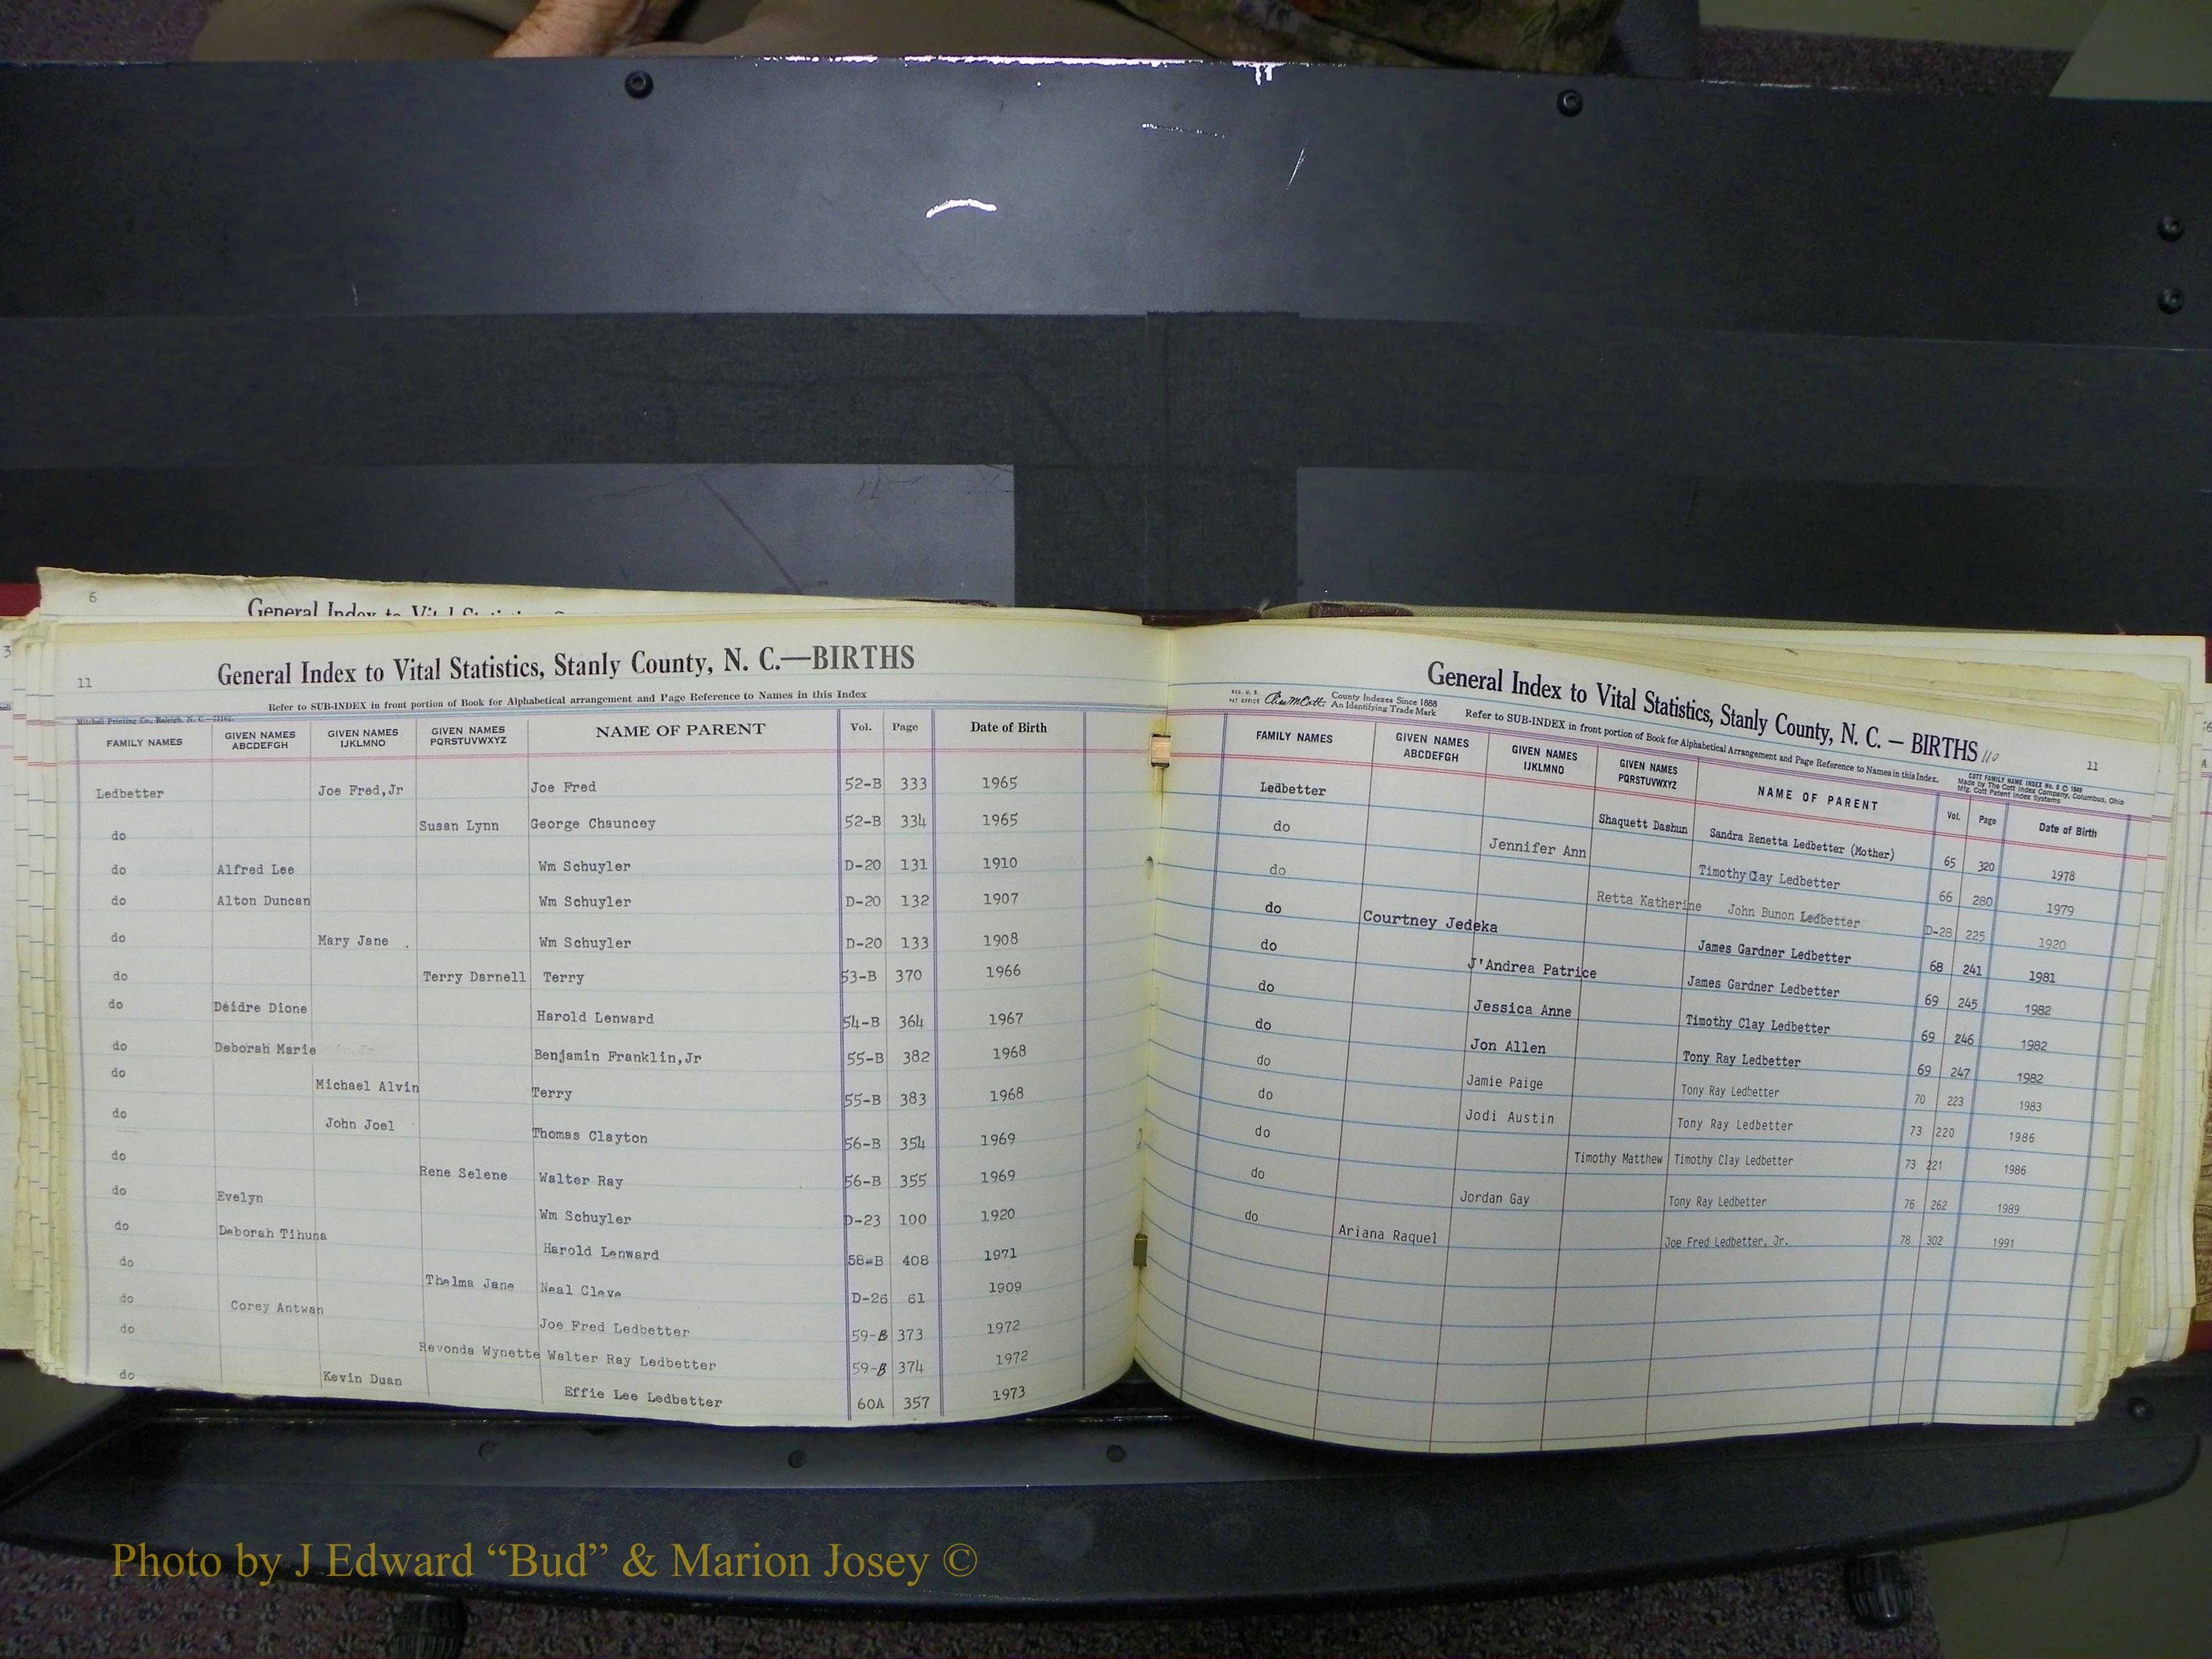 6
General Index to Vital Statistics, S
3
11
General Index to Vital Statistics, Stanly County, N. C.—BIRTHS
Refer to SUB-INDEX in front portion of Book for Alphabetical arrangement and Page Reference to Names in this Index
Mitchell Printing Co., Raleigh, N. C.
FAMILY NAMES GIVEN NAMES ABCDEFGH GIVEN NAMES IJKLMNO GIVEN NAMES PQRSTUVWXYZ NAME OF PARENT Vol. Page Date of Birth
Ledbetter Joe Fred,Jr Joe Fred 52-B 333 1965
do Susan Lynn George Chauncey 52-B 334 1965
do Alfred Lee Wm Schuyler D-20 131 1910
do Alton Duncan Wm Schuyler D-20 132 1907
do Mary Jane . Wm Schuyler D-20 133 1908
do Terry Darnell Terry 53-B 370 1966
do Deidre Dione Harold Lenward 54-B 364 1967
do Deborah Marie Benjamin Franklin,Jr 55-B 382 1968
do Michael Alvin Terry 55-B 383 1968
do John Joel Thomas Clayton 56-B 354 1969
do Rene Selene Walter Ray 56-B 355 1969
do Evelyn Wm Schuyler D-23 100 1920
do Deborah Tihuna Harold Lenward 58-B 408 1971
do Thelma Jane Neal Cleve D-26 61 1909
do Corey Antwan Joe Fred Ledbetter 59-B 373 1972
do Revonda Wynette Walter Ray Ledbetter 59-B 374 1972
do Kevin Duan Effie Lee Ledbetter 60A 357 1973
General Index to Vital Statistics, Stanly County, N. C. — BIRTHS 110
11
REG. U. S. PAT OFFICE County Indexes Since 1888
An Identifying Trade Mark
Refer to SUB-INDEX in front portion of Book for Alphabetical Arrangement and Page Reference to Names in this Index.
COTT FAMILY NAME INDEX No. 8 © 1949
Made by The Cott Index Company, Columbus, Ohio
Mfg. Cott Patent Index Systems
FAMILY NAMES GIVEN NAMES ABCDEFGH GIVEN NAMES IJKLMNO GIVEN NAMES PQRSTUVWXYZ NAME OF PARENT Vol. Page Date of Birth
Ledbetter Shaquett Dashun Sandra Renetta Ledbetter (Mother) 65 320 1978
do Jennifer Ann Timothy Clay Ledbetter 66 280 1979
do Retta Katherine John Bunon Ledbetter D-28 225 1920
do Courtney Jedeka James Gardner Ledbetter 68 241 1981
do J'Andrea Patrice James Gardner Ledbetter 69 245 1982
do Jessica Anne Timothy Clay Ledbetter 69 246 1982
do Jon Allen Tony Ray Ledbetter 69 247 1982
do Jamie Paige Tony Ray Ledbetter 70 223 1983
do Jodi Austin Tony Ray Ledbetter 73 220 1986
do Timothy Matthew Timothy Clay Ledbetter 73 221 1986
do Jordan Gay Tony Ray Ledbetter 76 262 1989
do Ariana Raquel Joe Fred Ledbetter, Jr. 78 302 1991
Photo by J Edward “Bud” & Marion Josey ©